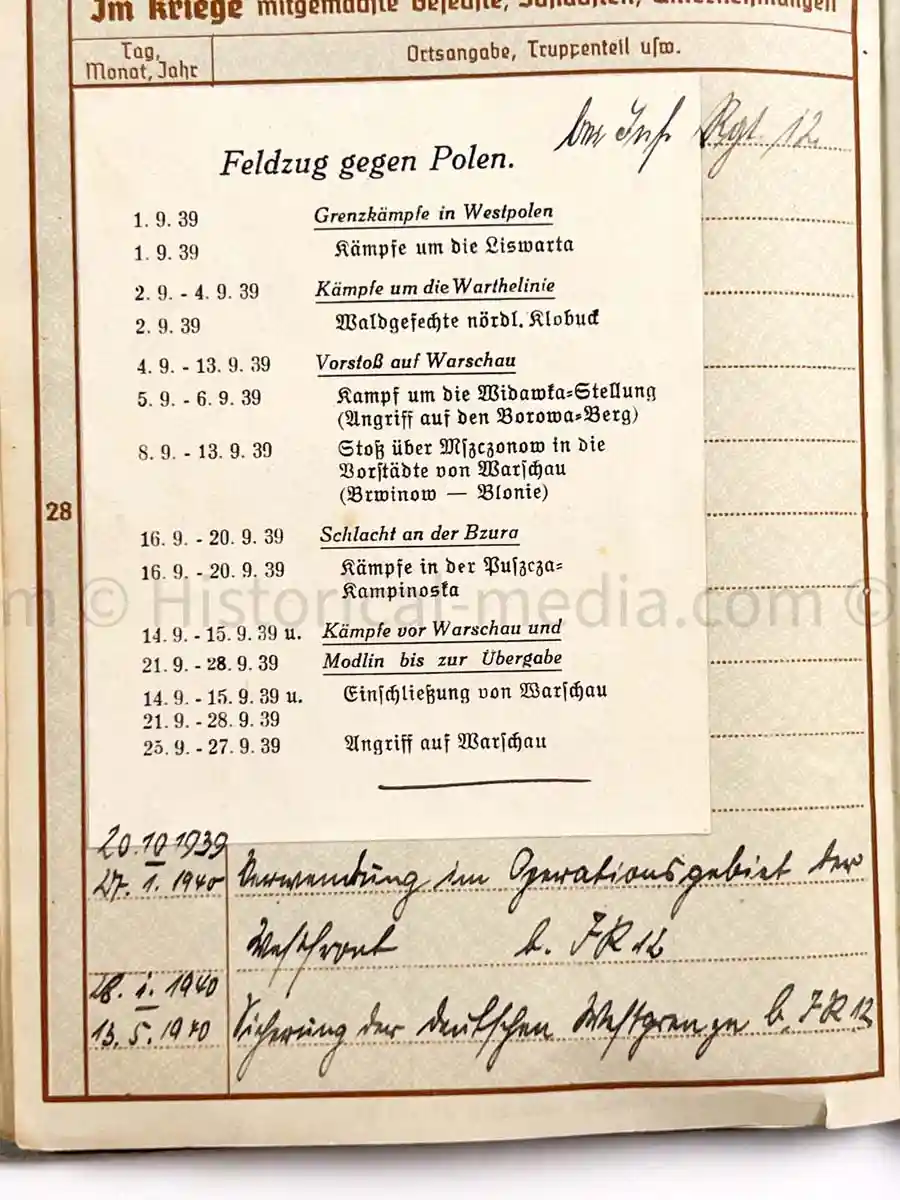 Im Kriege mitgemachte Gefechte, Schlachten, Unternehmungen
Tag,
Monat, Jahr
Ortsangabe, Truppenteil usw.
bei Inf. Rgt. 12
Feldzug gegen Polen.
1. 9. 39 Grenzkämpfe in Westpolen
1. 9. 39 Kämpfe um die Liswarta
2. 9. - 4. 9. 39 Kämpfe um die Warthelinie
2. 9. 39 Waldgefechte nördl. Klobuck
4. 9. - 13. 9. 39 Vorstoß auf Warschau
5. 9. - 6. 9. 39 Kampf um die Widawka-Stellung
(Angriff auf den Borowa-Berg)
8. 9. - 13. 9. 39 Stoß über Mszczonow in die
Vorstädte von Warschau
(Brwinow — Blonie)
28
16. 9. - 20. 9. 39 Schlacht an der Bzura
16. 9. - 20. 9. 39 Kämpfe in der Puszcza-
Kampinoska
m © Historical-media.com ©
14. 9. - 15. 9. 39 u. Kämpfe vor Warschau und
21. 9. - 28. 9. 39 Modlin bis zur Übergabe
14. 9. - 15. 9. 39 u. Einschließung von Warschau
21. 9. - 28. 9. 39
25. 9. - 27. 9. 39 Angriff auf Warschau
20. 10 1939
27. 1. 1940 Verwendung im Operationsgebiet der
Westfront b. IR 12
28. 1. 1940
13. 5. 1940 Sicherung der deutschen Westgrenze b. IR 12